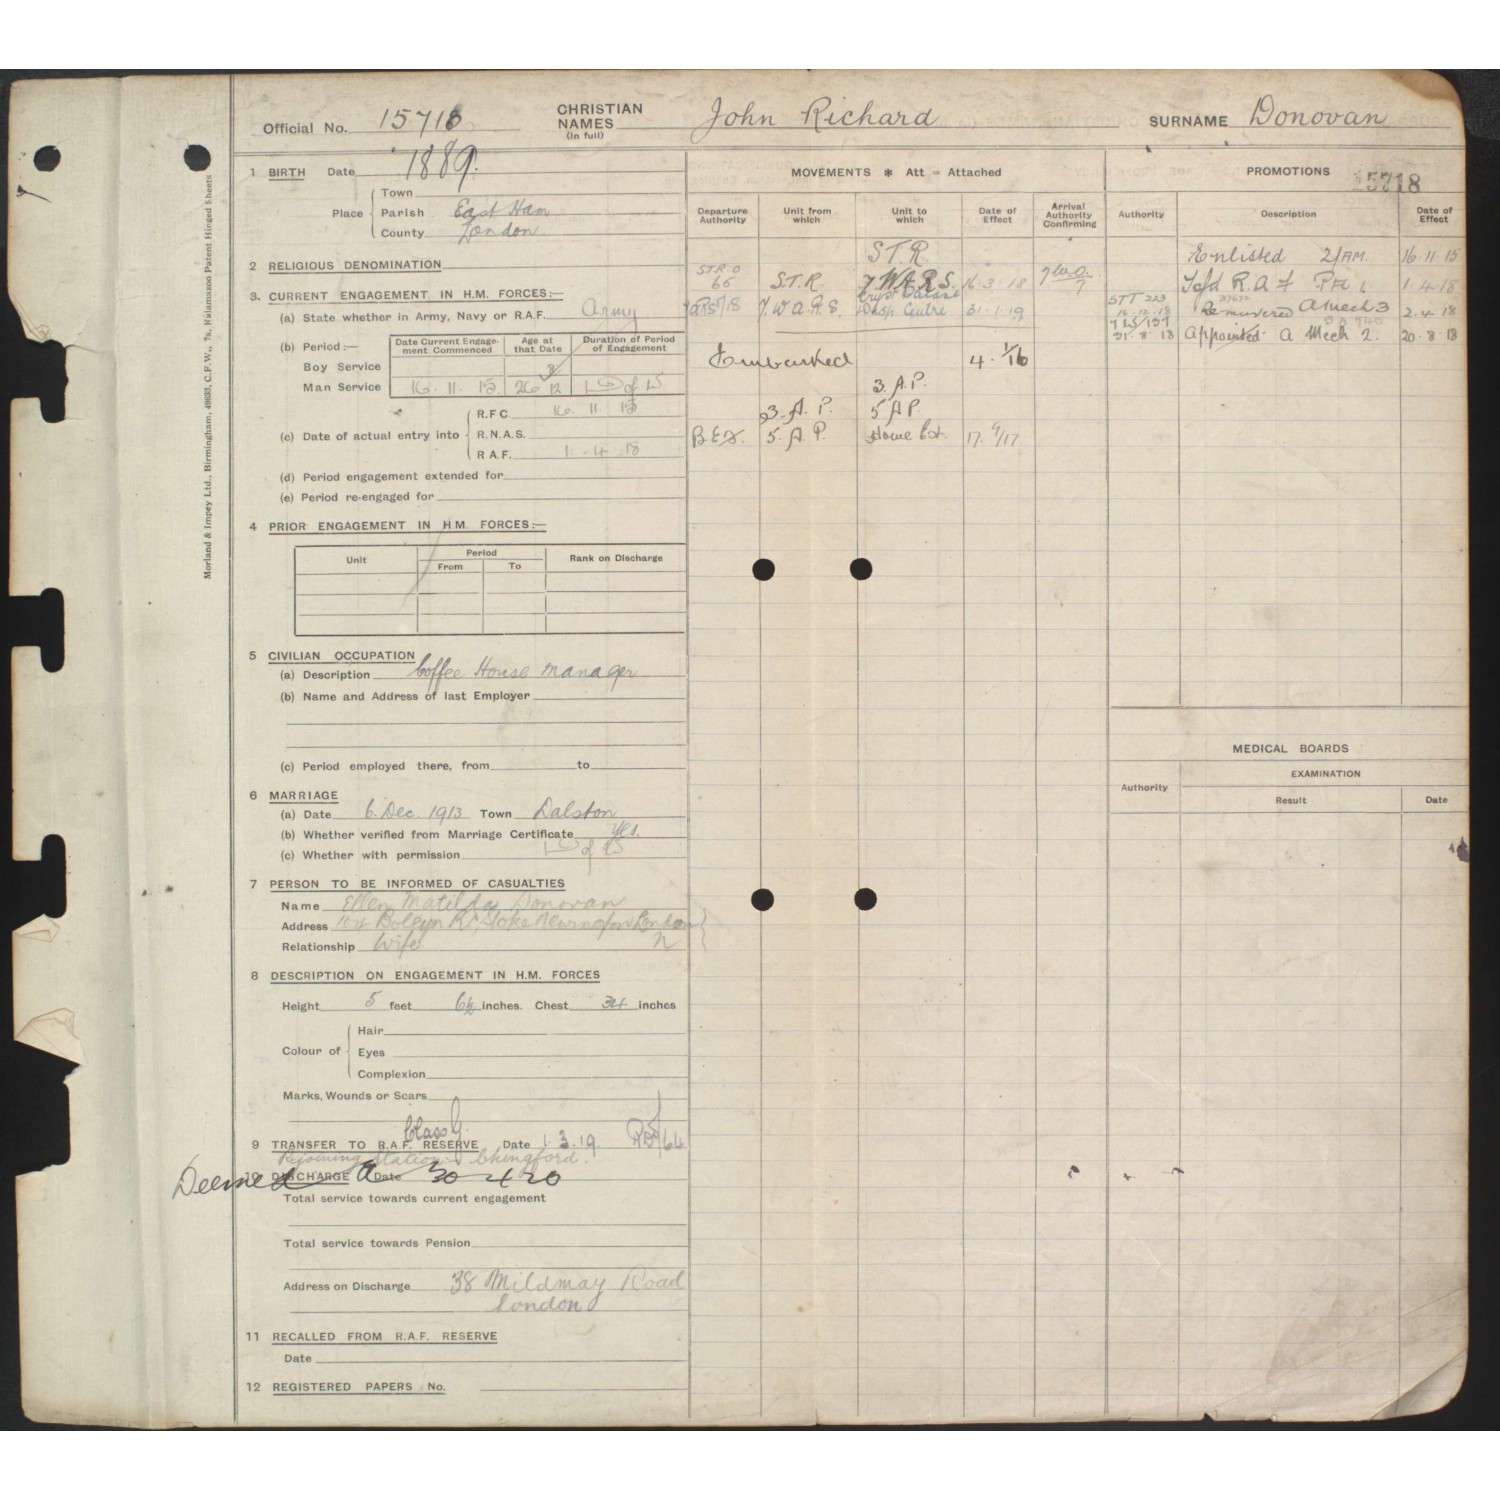 Official No. 15718 CHRISTIAN NAMES (in full) John Richard SURNAME Donovan
1 BIRTH Date 1889.
Place Town
Parish East Ham
County London
2 RELIGIOUS DENOMINATION
3. CURRENT ENGAGEMENT IN H.M. FORCES:—
(a) State whether in Army, Navy or R.A.F. Army
(b) Period:— Date Current Engagement Commenced Age at that Date Duration of Period of Engagement
Boy Service
Man Service 16. 11. 15 26 8/12 D of W
(c) Date of actual entry into R.F.C. 16. 11. 15
R.N.A.S.
R.A.F. 1. 4. 18
(d) Period engagement extended for
(e) Period re-engaged for
4 PRIOR ENGAGEMENT IN H.M. FORCES:—
Unit Period Rank on Discharge
From To
5 CIVILIAN OCCUPATION
(a) Description Coffee House Manager
(b) Name and Address of last Employer
(c) Period employed there, from to
6 MARRIAGE
(a) Date 6. Dec. 1913 Town Dalston
(b) Whether verified from Marriage Certificate Yes.
(c) Whether with permission D of W
7 PERSON TO BE INFORMED OF CASUALTIES
Name Ellen Matilda Donovan
Address Boleyn Rd, Stoke Newington London
Relationship Wife N
8 DESCRIPTION ON ENGAGEMENT IN H.M. FORCES
Height 5 feet 6½ inches. Chest 34 inches
Colour of Hair
Eyes
Complexion
Marks, Wounds or Scars
Class G.
9 TRANSFER TO R.A.F. RESERVE Date 1.3.19.
Rejoining Station:- Chingford.
10 DISCHARGE Date 30 4 20
Deemed
Total service towards current engagement
Total service towards Pension
Address on Discharge 38 Mildmay Road
London
11 RECALLED FROM R.A.F. RESERVE
Date
12 REGISTERED PAPERS No.
MOVEMENTS * Att = Attached
Departure Authority Unit from which Unit to which Date of Effect Arrival Authority Confirming
S.T.R.
STR.O 65 S.T.R. 7 W.A.R.S. 16.3.18
7 W.A.R.S. Crystal Palace Disp. Centre 31.1.19
Embarked 4. 1/16
3. A.P.
3. A. P. 5 A P.
B.E.F. 5. A. P. Home Est. 17. 9/17
PROMOTIONS 15718
Authority Description Date of Effect
Enlisted 2/AM. 16.11.15
Tsfd R.A.F Pte 1 1.4.18
STT 223 12.12.18 Remustered A Mech 3 2.4.18
31.8.18 Appointed A Mech 2. 20.8.18
MEDICAL BOARDS
Authority EXAMINATION
Result Date
Morland & Impey Ltd., Birmingham, 49633, C.F.W., 7s, Kalamazoo Patent Hinged Sheets